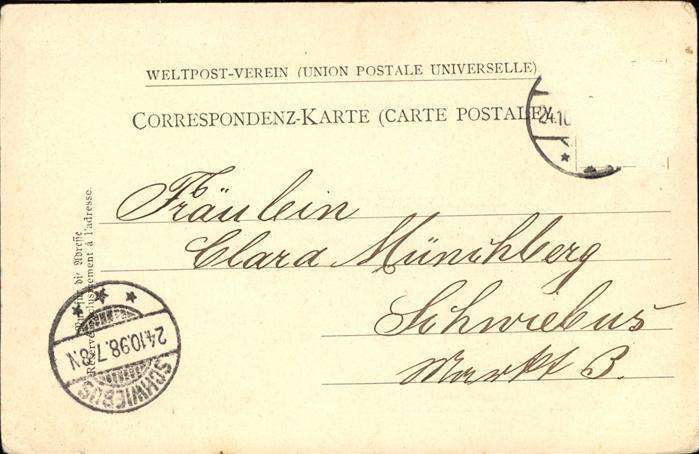 WELTPOST-VEREIN (UNION POSTALE UNIVERSELLE)
CORRESPONDENZ-KARTE (CARTE POSTALE)
24.10
Fräulein
Clara Münchberg
Schwiebus
Markt 3.
die Adresse
à l'adresse.
24.10.98.7-8.N
SCHWIEBUS